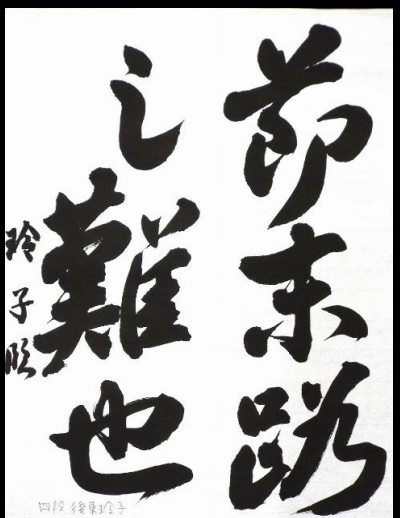 節末路
之難也
玲子臨
四段 後東玲子